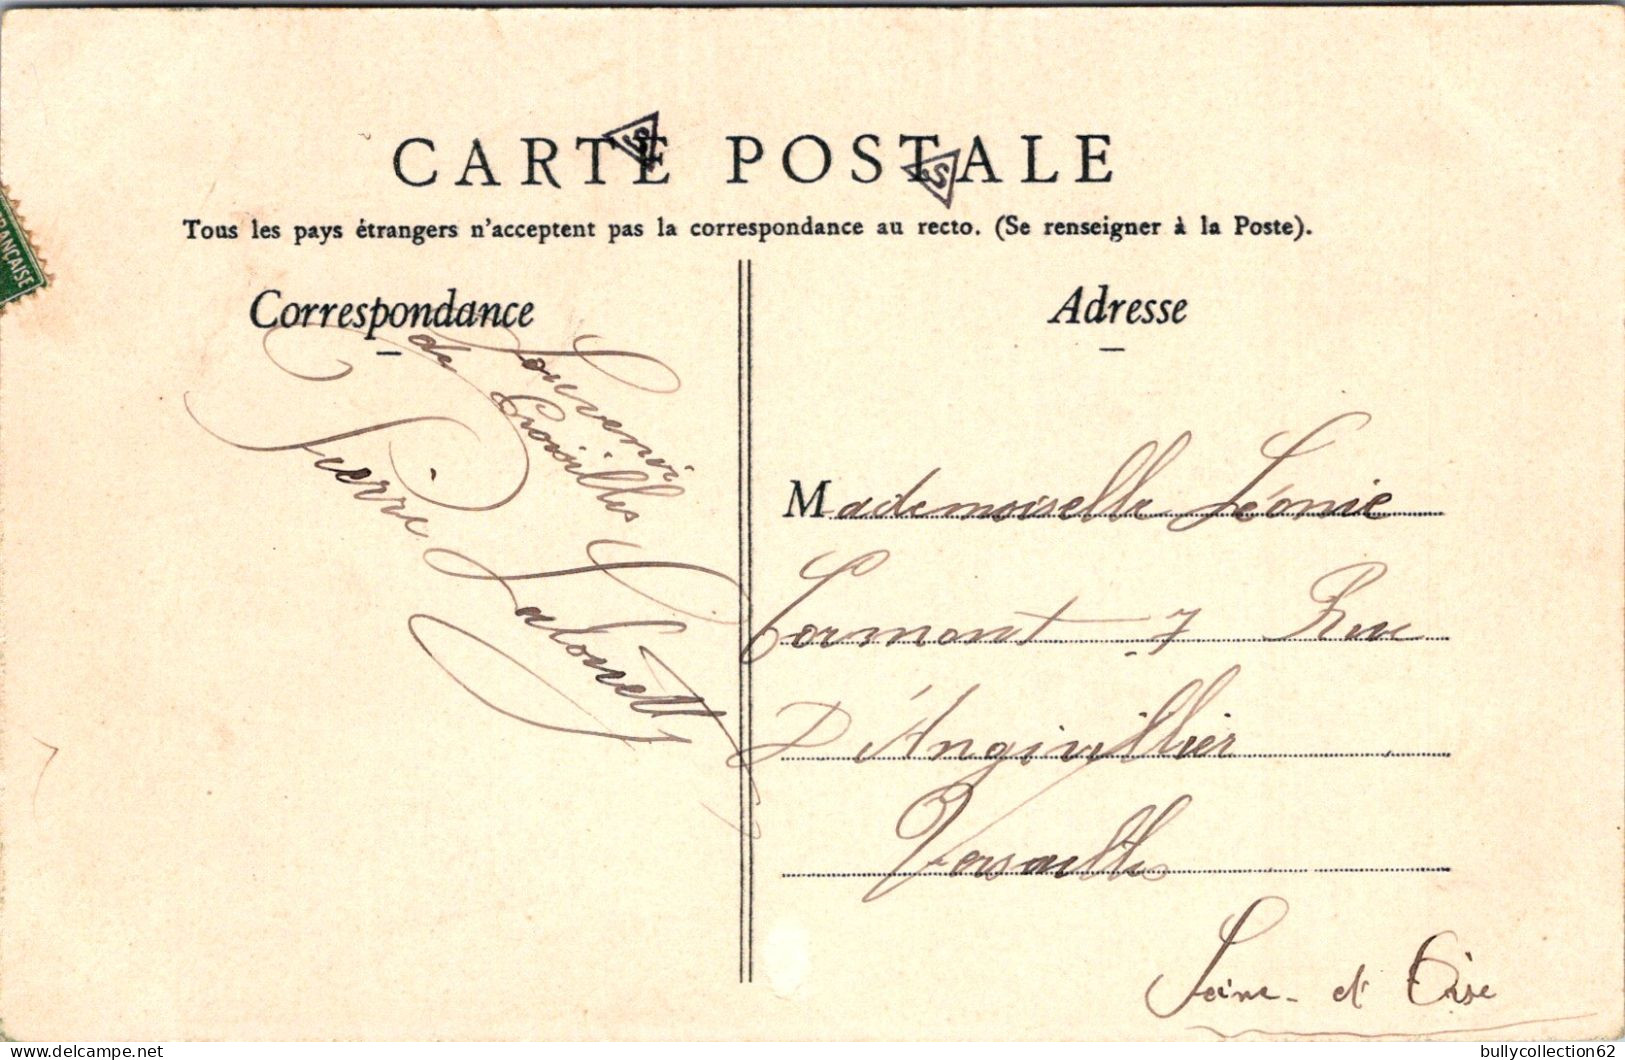 CARTE POSTALE
S
S
Tous les pays étrangers n'acceptent pas la correspondance au recto. (Se renseigner à la Poste).
FRANÇAISE
Correspondance
Souvenir
de Croisilles
Pierre
Adresse
Mademoiselle Léonie
Cormont 7 Rue
D'Angivillier
Versailles
Seine et Oise
bullycollection62